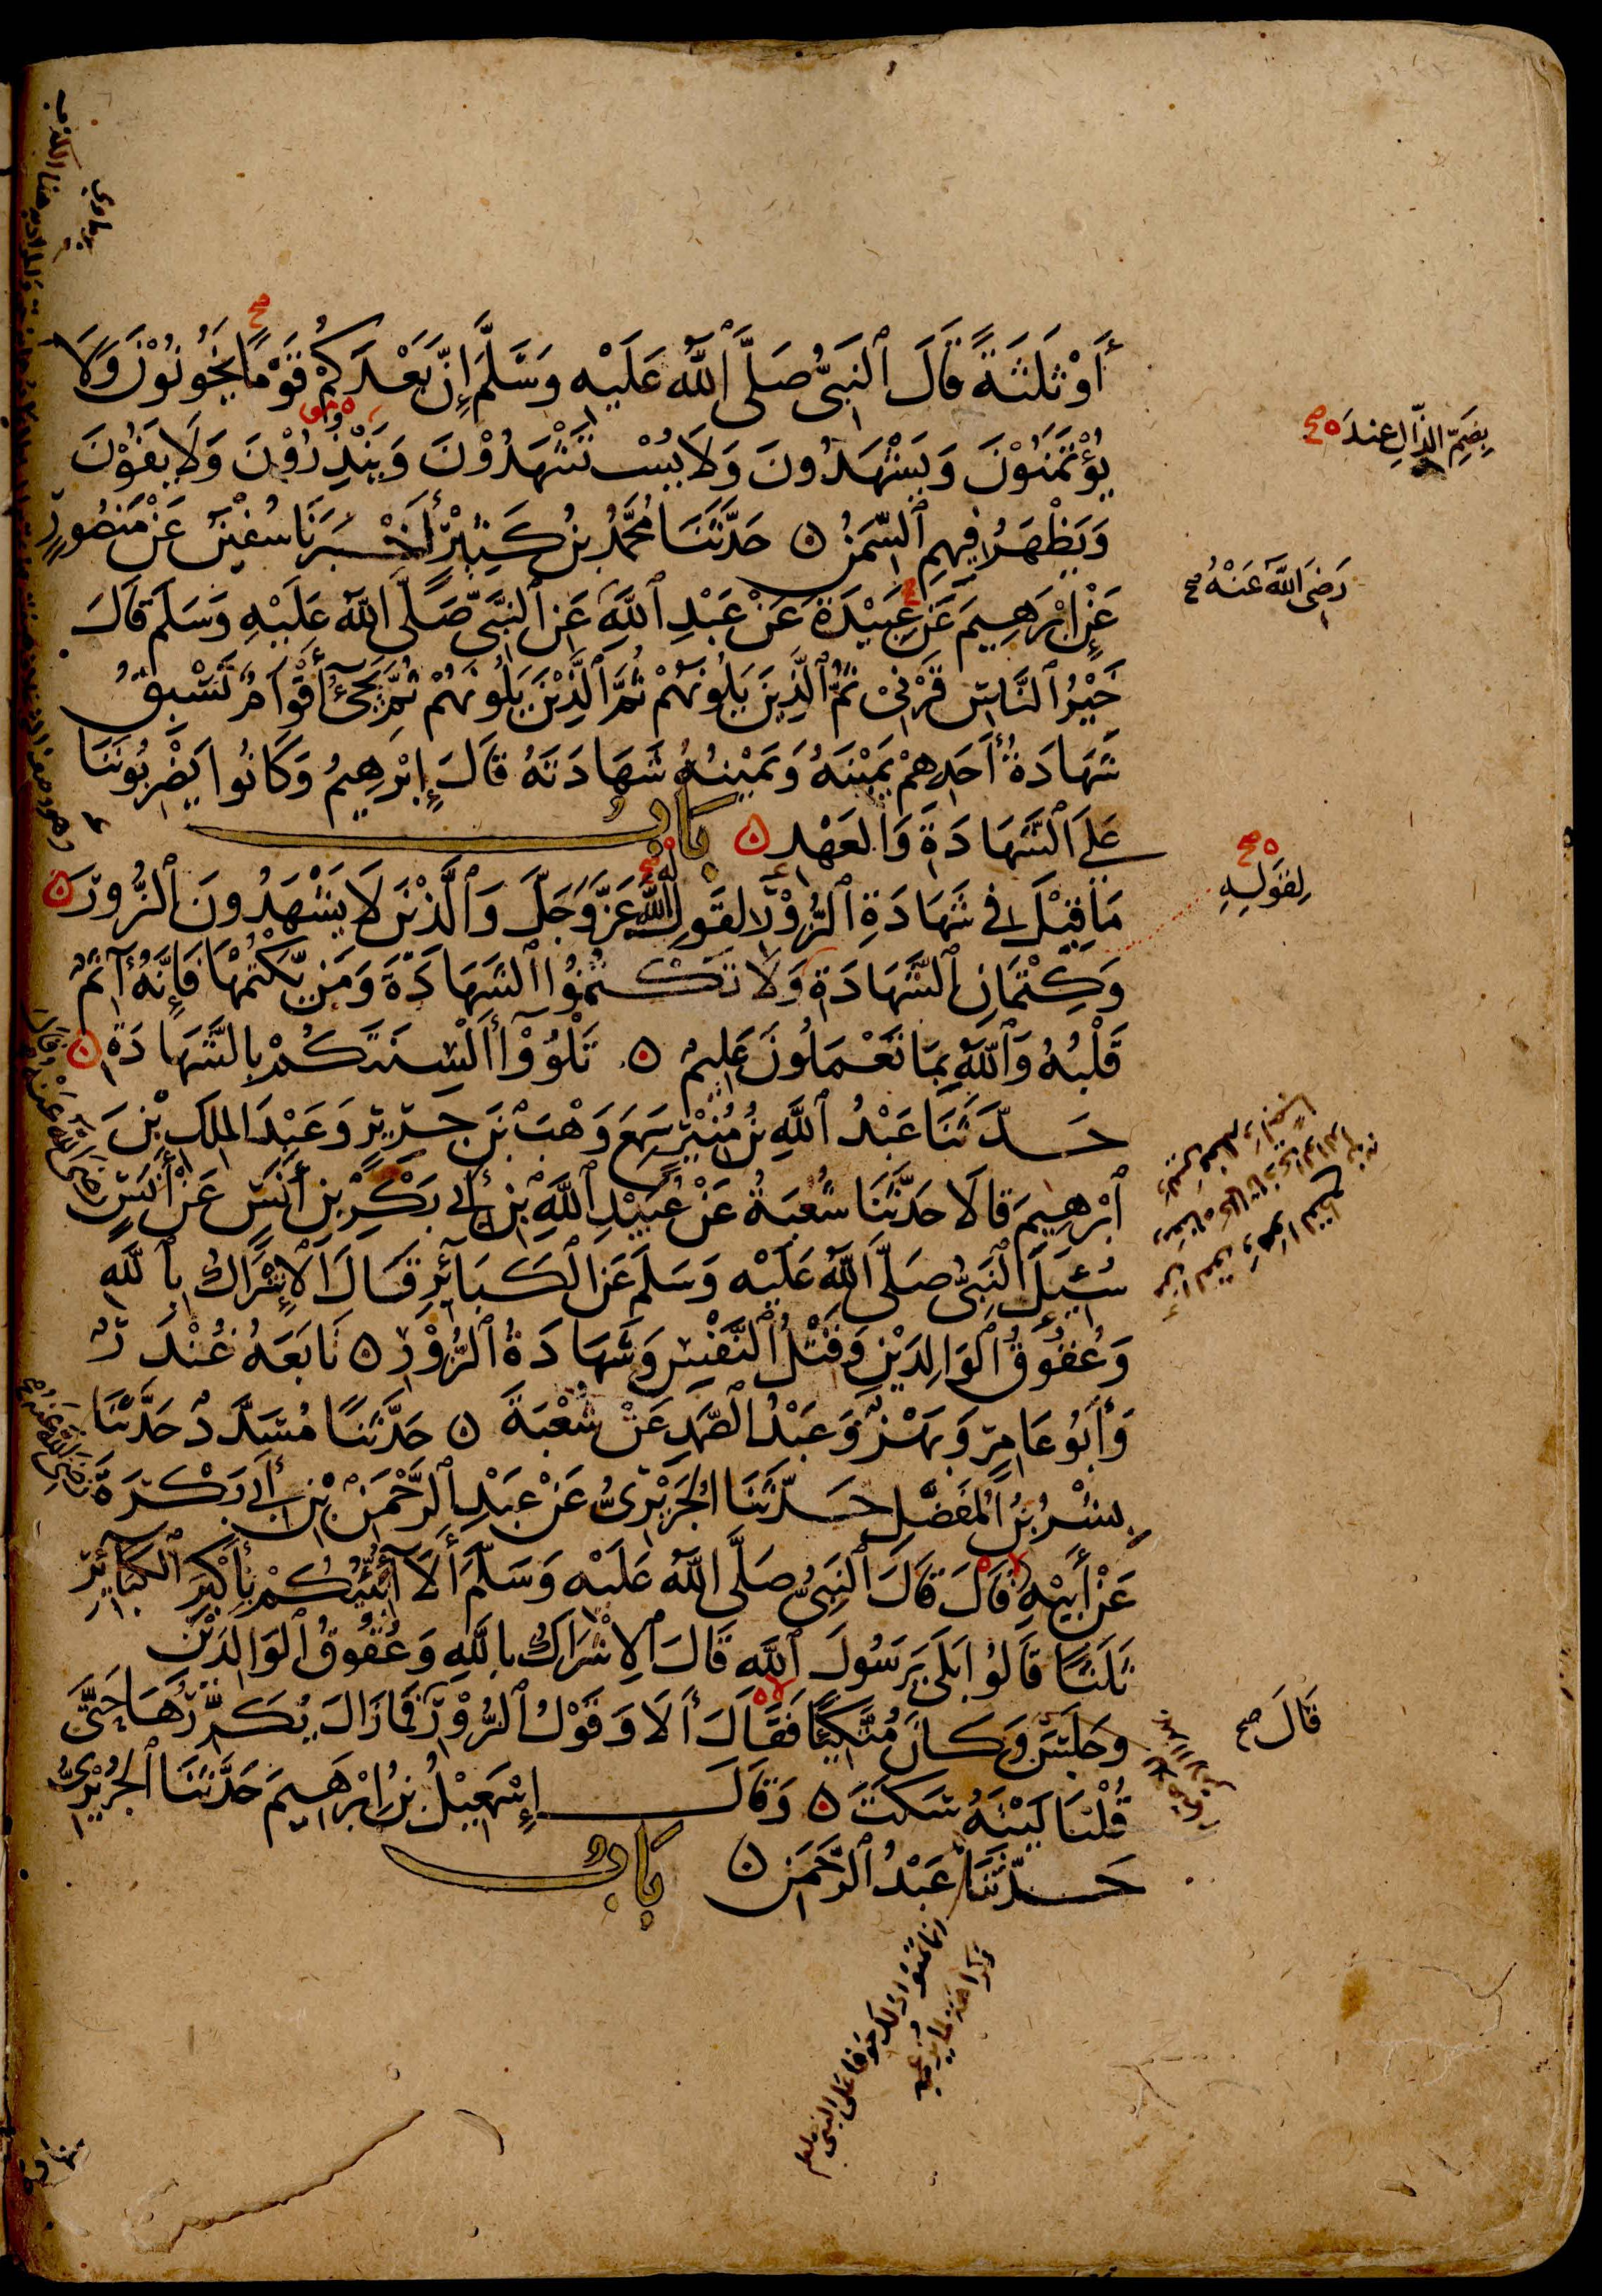 أَوْ ثَلٰثَةً قَالَ ٱلنَّبِىُّ صَلَّى ٱللّٰهُ عَلَيْهِ وَسَلَّمَ إِنَّ بَعْدَكُمْ قَوْمًا يَخُونُوْنَ وَلَا
يُؤْتَمَنُوْنَ وَيَشْهَدُونَ وَلَا يُسْتَشْهَدُوْنَ وَيَنْذِرُوْنَ وَلَا يَفُوْنَ
بِضَمِّ الذَّالِ عِندَ ه صح
وَيَظْهَرُ فِيهِمِ ٱلسِّمَنُ ۝ حَدَّثَنَا مُحَمَّدُ بْنُ كَثِيْرٍ أَخْبَرَنَا سُفْيٰنُ عَنْ مَنْصُورٍ
عَنْ إِبْرٰهِيمَ عَنْ عَبِيْدَةَ عَنْ عَبْدِ ٱللّٰهِ عَنِ ٱلنَّبِىِّ صَلَّى ٱللّٰهُ عَلَيْهِ وَسَلَّمَ قَالَ
رَضِىَ اللّٰهُ عَنْهُ صح
خَيْرُ ٱلنَّاسِ قَرْنِىْ ثُمَّ ٱلَّذِيْنَ يَلُوْنَهُمْ ثُمَّ ٱلَّذِيْنَ يَلُوْنَهُمْ ثُمَّ يَجِىْءُ أَقْوَامٌ تَسْبِقُ
شَهَادَةُ أَحَدِهِمْ يَمِيْنَهُ وَيَمِيْنُهُ شَهَادَتَهُ قَالَ إِبْرٰهِيمُ وَكَانُوا يَضْرِبُوْنَنَا
عَلَى ٱلشَّهَادَةِ وَالْعَهْدِ ۝ بَابُ
مَا قِيْلَ فِى شَهَادَةِ ٱلزُّوْرِ لِقَوْلِ ٱللّٰهِ عَزَّ وَجَلَّ وَٱلَّذِيْنَ لَا يَشْهَدُونَ ٱلزُّورَ ۝
لِقَوْلِهِ ه صح
وَكِتْمَانِ ٱلشَّهَادَةِ وَلَا تَكْتُمُوا ٱلشَّهَادَةَ وَمَنْ يَكْتُمْهَا فَإِنَّهُ آثِمٌ
قَلْبُهُ وَٱللّٰهُ بِمَا تَعْمَلُونَ عَلِيمٌ ۝ تَلْوُوْآ أَلْسِنَتَكُمْ بِالشَّهَادَةِ ۝
حَدَّثَنَا عَبْدُ ٱللّٰهِ بْنُ مُنِيْرٍ سَمِعَ وَهْبَ بْنَ جَرِيْرٍ وَعَبْدَ الْمَلِكِ بْنَ
إِبْرٰهِيمَ قَالَا حَدَّثَنَا شُعْبَةُ عَنْ عُبَيْدِ ٱللّٰهِ بْنِ أَبِى بَكْرِ بْنِ أَنَسٍ عَنْ أَنَسٍ
رَضِىَ اللّٰهُ عَنْهُ
سُئِلَ ٱلنَّبِىُّ صَلَّى ٱللّٰهُ عَلَيْهِ وَسَلَّمَ عَنِ ٱلْكَبَآئِرِ قَالَ ٱلْإِشْرَاكُ بِٱللّٰهِ
وَعُقُوْقُ ٱلْوَالِدَيْنِ وَقَتْلُ ٱلنَّفْسِ وَشَهَادَةُ ٱلزُّوْرِ ۝ تَابَعَهُ غُنْدَرٌ
وَأَبُو عَامِرٍ وَبَهْزٌ وَعَبْدُ ٱلصَّمَدِ عَنْ شُعْبَةَ ۝ حَدَّثَنَا مُسَدَّدٌ حَدَّثَنَا
بِشْرُ بْنُ ٱلْمُفَضَّلِ حَدَّثَنَا الْجُرَيْرِىُّ عَنْ عَبْدِ ٱلرَّحْمٰنِ بْنِ أَبِى بَكْرَةَ
رَضِىَ اللّٰهُ عَنْهُ
عَنْ أَبِيْهِ قَالَ قَالَ ٱلنَّبِىُّ صَلَّى ٱللّٰهُ عَلَيْهِ وَسَلَّمَ أَلَا أُنَبِّئُكُمْ بِأَكْبَرِ ٱلْكَبَآئِرِ
ثَلٰثًا قَالُوا بَلَى يٰرَسُولَ ٱللّٰهِ قَالَ ٱلْإِشْرَاكُ بِاللّٰهِ وَعُقُوقُ ٱلْوَالِدَيْنِ
وَجَلَسَ وَكَانَ مُتَّكِئًا فَقَالَ أَلَا وَقَوْلُ ٱلزُّوْرِ فَمَا زَالَ يُكَرِّرُهَا حَتَّى
قَالَ صح
قُلْنَا لَيْتَهُ سَكَتَ ۝ وَقَالَ إِسْمٰعِيْلُ بْنُ إِبْرٰهِيمَ حَدَّثَنَا ٱلْجُرَيْرِىُّ
حَدَّثَنَا عَبْدُ ٱلرَّحْمٰنِ ۝ بَابُ